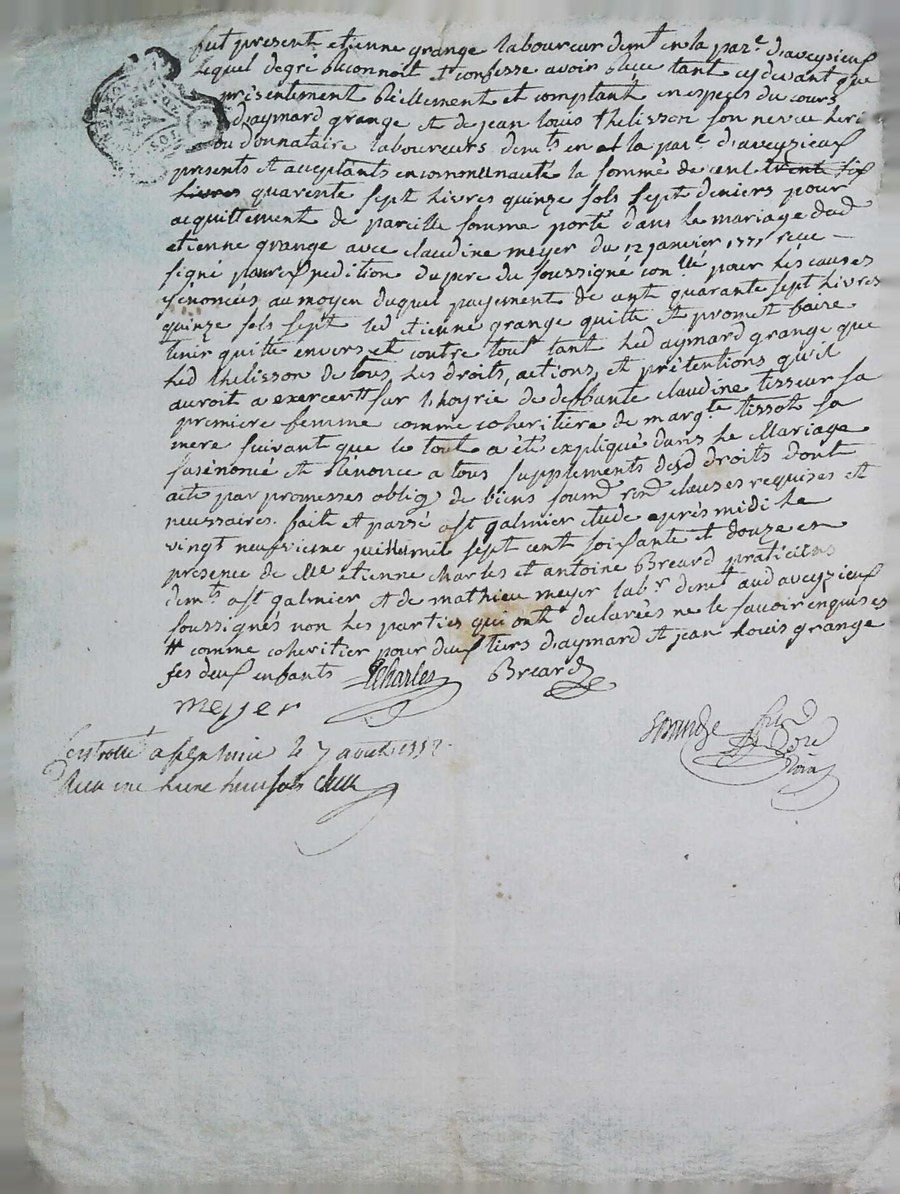 fut present etienne grange laboureur demt en la pare d'aveyzieux
lequel de gré Reconnoit et confesse avoir Reçu tant cy devant que
présentement Réellement et comptant en especes du cours
d'aymard grange et de jean louis thelisson son neveu heri
ou donnataire laboureurs demts en et la pare d'aveyzieux
presents et acceptants en communauté la somme de cent trente six
livres quarente sept livres quinze sols sept deniers pour
acquittement de pareille somme porté dans le mariage dud
etienne grange avec claudine meyer du 12 janvier 1771 reçu
signé par expedition du pere du soussigné con llé pour les causes
y énoncées au moyen duquel payement de cent quarante sept livres
quinze sols sept led etienne grange quitte et promet faire
tenir quitte envers et contre tous tant led aymard grange que
led thelisson de tous les droits, actions, et prétentions qu'il
auroit a exercer tt sur l'hoyrie de deffunte claudine tisseur sa
premiere femme comme coheritiere de margte tissot sa
mere suivant que le tout a été expliqué dans le Mariage
susénoncé et Renonce a tous supplements desd droits dont
acte par promesses oblig de biens soumd rend clauses requises et
necessaires. fait et passé a st galmier etude après midi le
vingt neufvieme juillet mil sept cent soixante et douze en
presence de Me etienne Charles et antoine Breard praticiens
demts a st galmier et de mathieu meyer labr demt aud aveyzieux
soussignés non les parties qui ont declarées ne le savoir enquises
tt comme coheritier pour deux tiers d'aymard et jean louis grange
ses deux enfants Charles Breard
meyer
Controllé a le 7 aout 1772
Reçu une livre huit sols